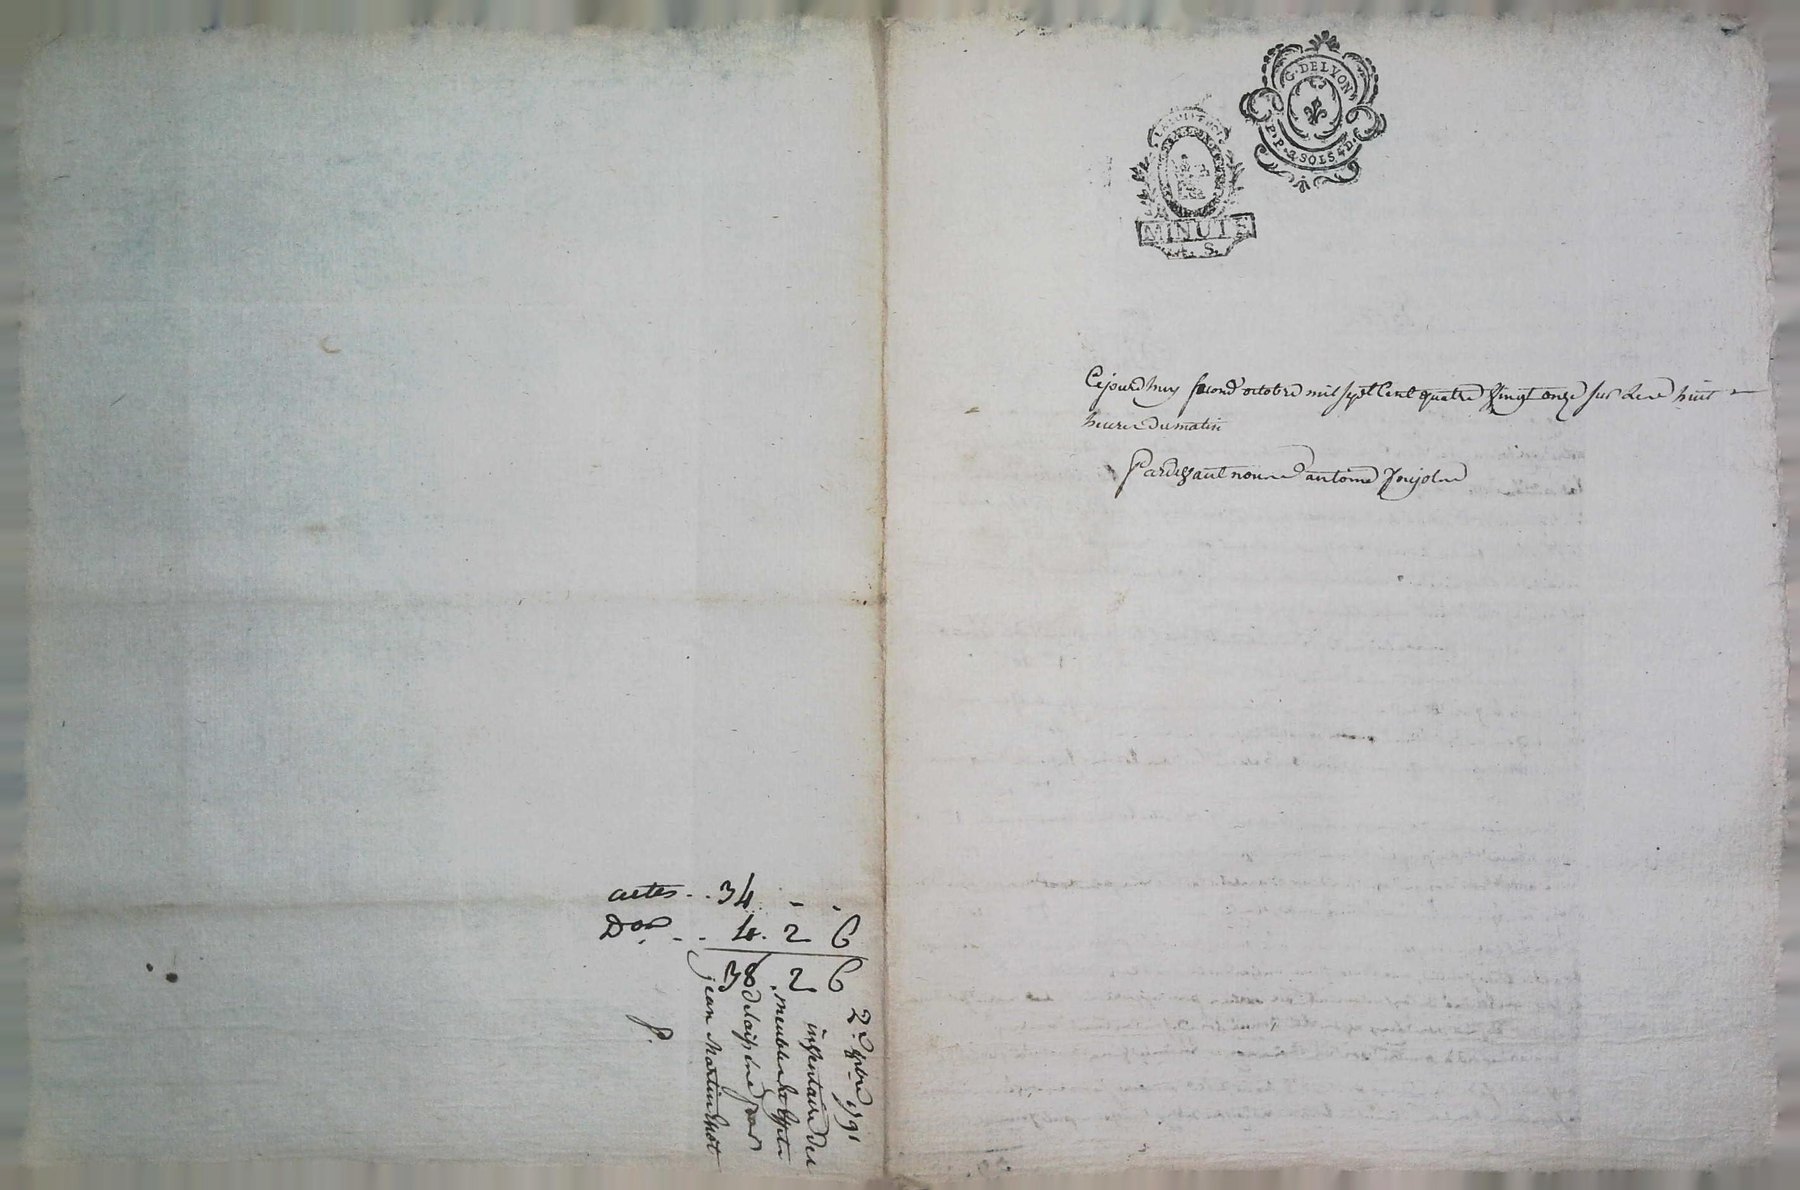 actes . . 34 - -
Don . . 4. 2 6
38 2 6
2e 8bre 1791
inventaire des
meubles et effets
delaissés par
jean Martin
P.
G. DE LYON
P.P. 2 SOLS 4 D.
LA LOI LE ROI
MINUTE
4. S.
Cejourd'huy second octobre mil sept cent quatre vingt onze sur les huit
heures du matin
Pardevant nous antoine